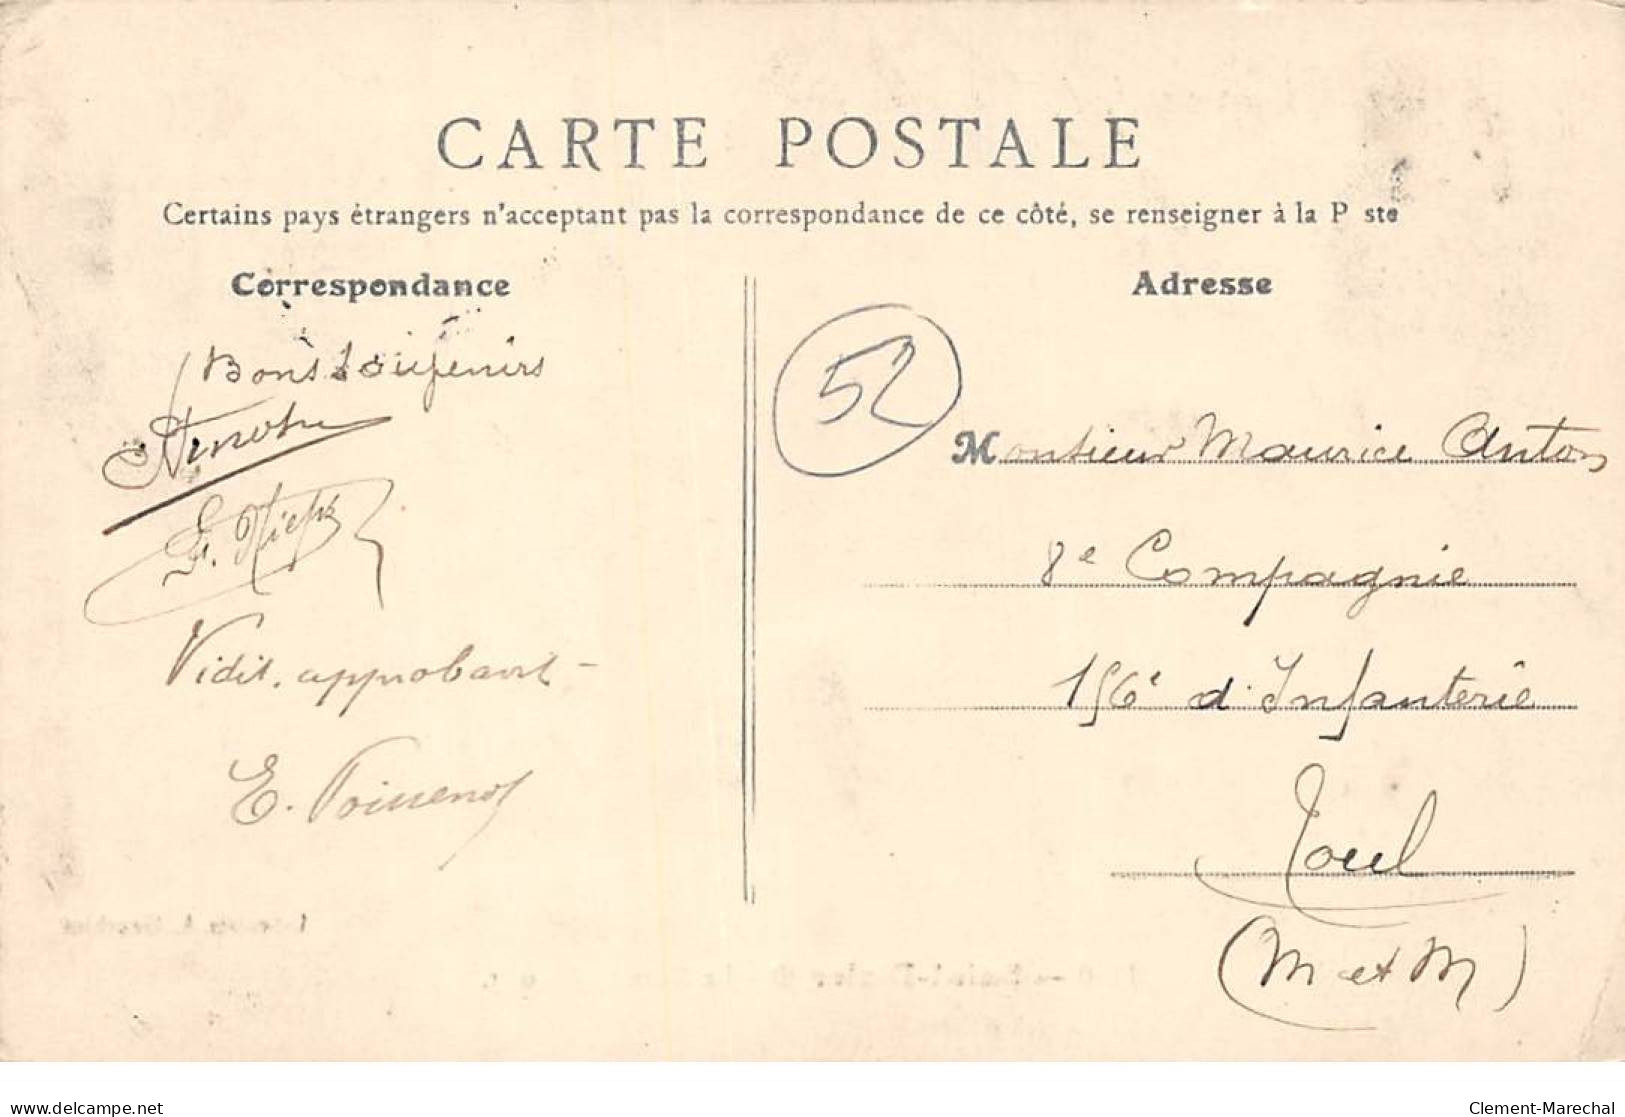 CARTE POSTALE
Certains pays étrangers n'acceptent pas la correspondance de ce côté, se renseigner à la P ste
Correspondance
Bons Souvenirs
Vidit. approbavit -
E. Poissenot
Adresse
52
Monsieur Maurice Anton
8e Compagnie
156e d'Infanterie
Toul
(M et M)
delcampe.net
Clement-Marechal